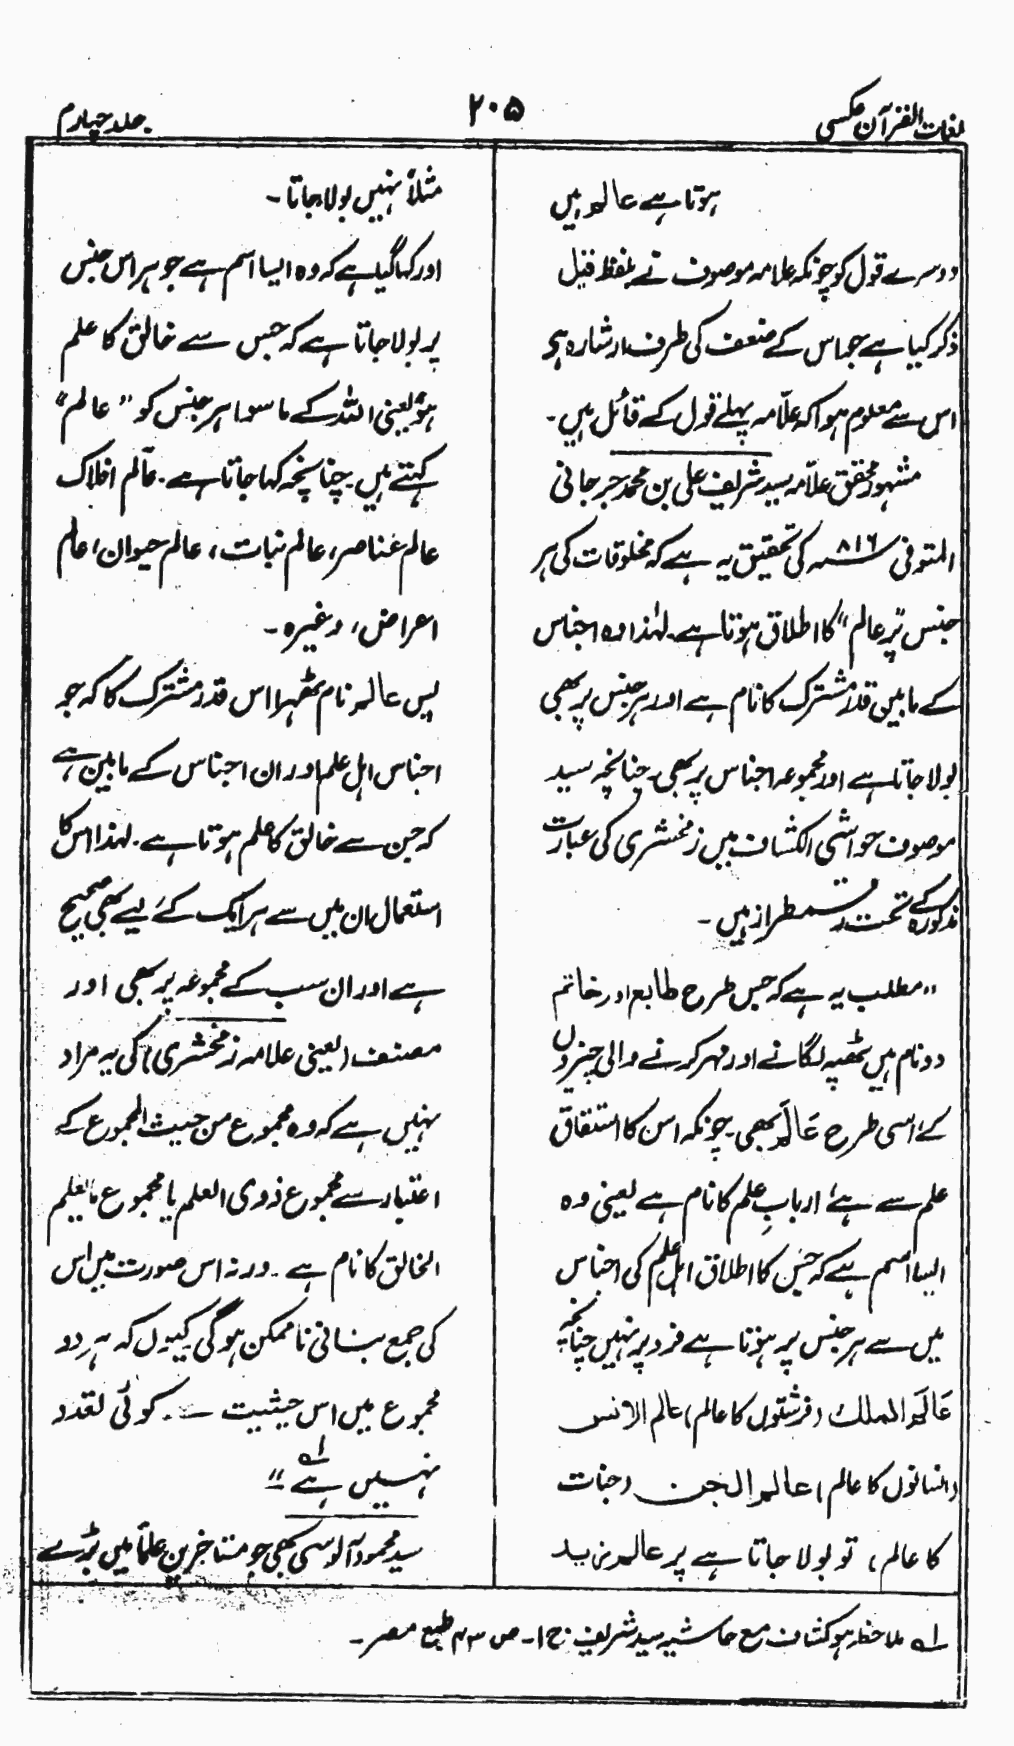 لغات القرآن عکسی
۲۰۵
جلد چہارم
ہوتا ہے عالم ہیں
دوسرے قول کو چونکہ علامہ موصوف نے بلفظ قیل
ذکر کیا ہے جو اس کے ضعف کی طرف اشارہ ہے
اس سے معلوم ہوا کہ علّامہ پہلے قول کے قائل ہیں۔
مشہور محقق علّامہ سید شریف علی بن محمد جرجانی
المتوفی ۸۱۶ھ کی تحقیق یہ ہے کہ مخلوقات کی ہر
جنس پر "عالم" کا اطلاق ہوتا ہے۔ لہٰذا وہ اجناس
کے مابین قدر مشترک کا نام ہے اور ہر جنس پر بھی
بولا جاتا ہے اور مجموعہ اجناس پر بھی۔ چنانچہ سید
موصوف حواشی الکشاف میں زمخشری کی عبارت
مذکورہ کے تحت رقمطراز ہیں۔
"مطلب یہ ہے کہ جس طرح طابع اور خاتم
دو نام ہیں ٹھپہ لگانے اور مہر کرنے والی چیزوں
کے، اسی طرح عَالَم بھی۔ چونکہ اس کا اشتقاق
علم سے ہے، اربابِ علم کا نام ہے یعنی وہ
ایسا اسم ہے کہ جس کا اطلاق اہل علم کی اجناس
میں سے ہر جنس پر ہوتا ہے فرد پر نہیں چنانچہ
عَالَم الملك (فرشتوں کا عالم) عالم الانس
(انسانوں کا عالم) عالم الجن (جنات
کا عالم)، تو بولا جاتا ہے پر عالم زید
مثلاً نہیں بولا جاتا۔
اور کہا گیا ہے کہ وہ ایسا اسم ہے جو ہر اس جنس
پر بولا جاتا ہے کہ جس سے خالق کا علم
ہو، یعنی اللہ کے ماسوا ہر جنس کو "عالم"
کہتے ہیں۔ چنانچہ کہا جاتا ہے۔ عالم افلاک
عالم عناصر، عالم نبات، عالم حیوان، عالم
اعراض، وغیرہ۔
پس عالم نام ٹھہرا اس قدر مشترک کا کہ جو
اجناس اہل علم اور ان اجناس کے مابین ہے
کہ جن سے خالق کا علم ہوتا ہے۔ لہذا اس کا
استعمال ان میں سے ہر ایک کے لیے بھی صحیح
ہے اور ان سب کے مجموعہ پر بھی اور
مصنف (یعنی علامہ زمخشری) کی یہ مراد
نہیں ہے کہ وہ مجموع من حیث المجموع کے
اعتبار سے مجموع ذوی العلم یا مجموع ما یعلم بہ
الخالق کا نام ہے۔ ورنہ اس صورت میں اس
کی جمع بنانی ناممکن ہوگی کیوں کہ ہر دو
مجموع میں اس حیثیت سے کوئی تعدد
نہیں ہے" لہ
سید محمود آلوسی بھی جو متاخرین علما میں بڑے
لہ ملاحظہ ہو کشاف مع حاشیہ سید شریف، ج ا۔ ص ۴۳ طبع مصر۔